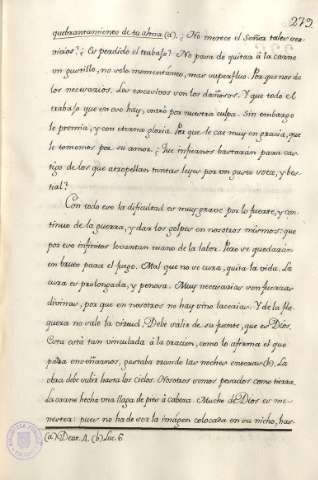 279.
quebrantamiento de tu alma (a). ¿No merece el Señor tales ser-
vicios? ¿Es perdido el trabajo? No para de quitar á la carne
un gustillo, no solo momentáneo, mas superfluo. Por que nos da
los necesarios. Los excesivos son los dañosos. Y que todo el
trabajo que en eso hay, entró por nuestra culpa. Sin embargo
le premia, y con eterna gloria. Por que le cae muy en gracia, que
le tomemos por su amor. ¿Que infiernos bastarán para cas-
tigo de los que atropellan tantas leyes por un gusto soez, y bes-
tial?
Con todo eso la dificultad es muy grave por lo fuerte, y con-
tinuo de la guerra, y dar los golpes en nosotros mismos: que
por eso infinitos levantan mano de la labor. Pero se quedarán
en bruto para el fuego. Mal que no se cura, quita la vida. La
cura es prolongada, y penosa. Muy necesarias son fuerzas
divinas, por que en nosotros no hay sino lacerias. Y de la fla-
queza no sale la virtud. Debe salir de su fuente, que es Dios.
Esta está tan vinculada á la oracion, como lo afirma el que
para enseñarnos, gastaba orando las noches enteras (b). La
obra debe subir hasta los cielos. Nosotros somos pesados como tierra.
La carne hecha una llaga de pies á cabeza. Mucho de Dios es me-
nester: pues no ha de ser la imágen colocada en su nicho, has-
(a) Deut. 4. (b) Luc. 6